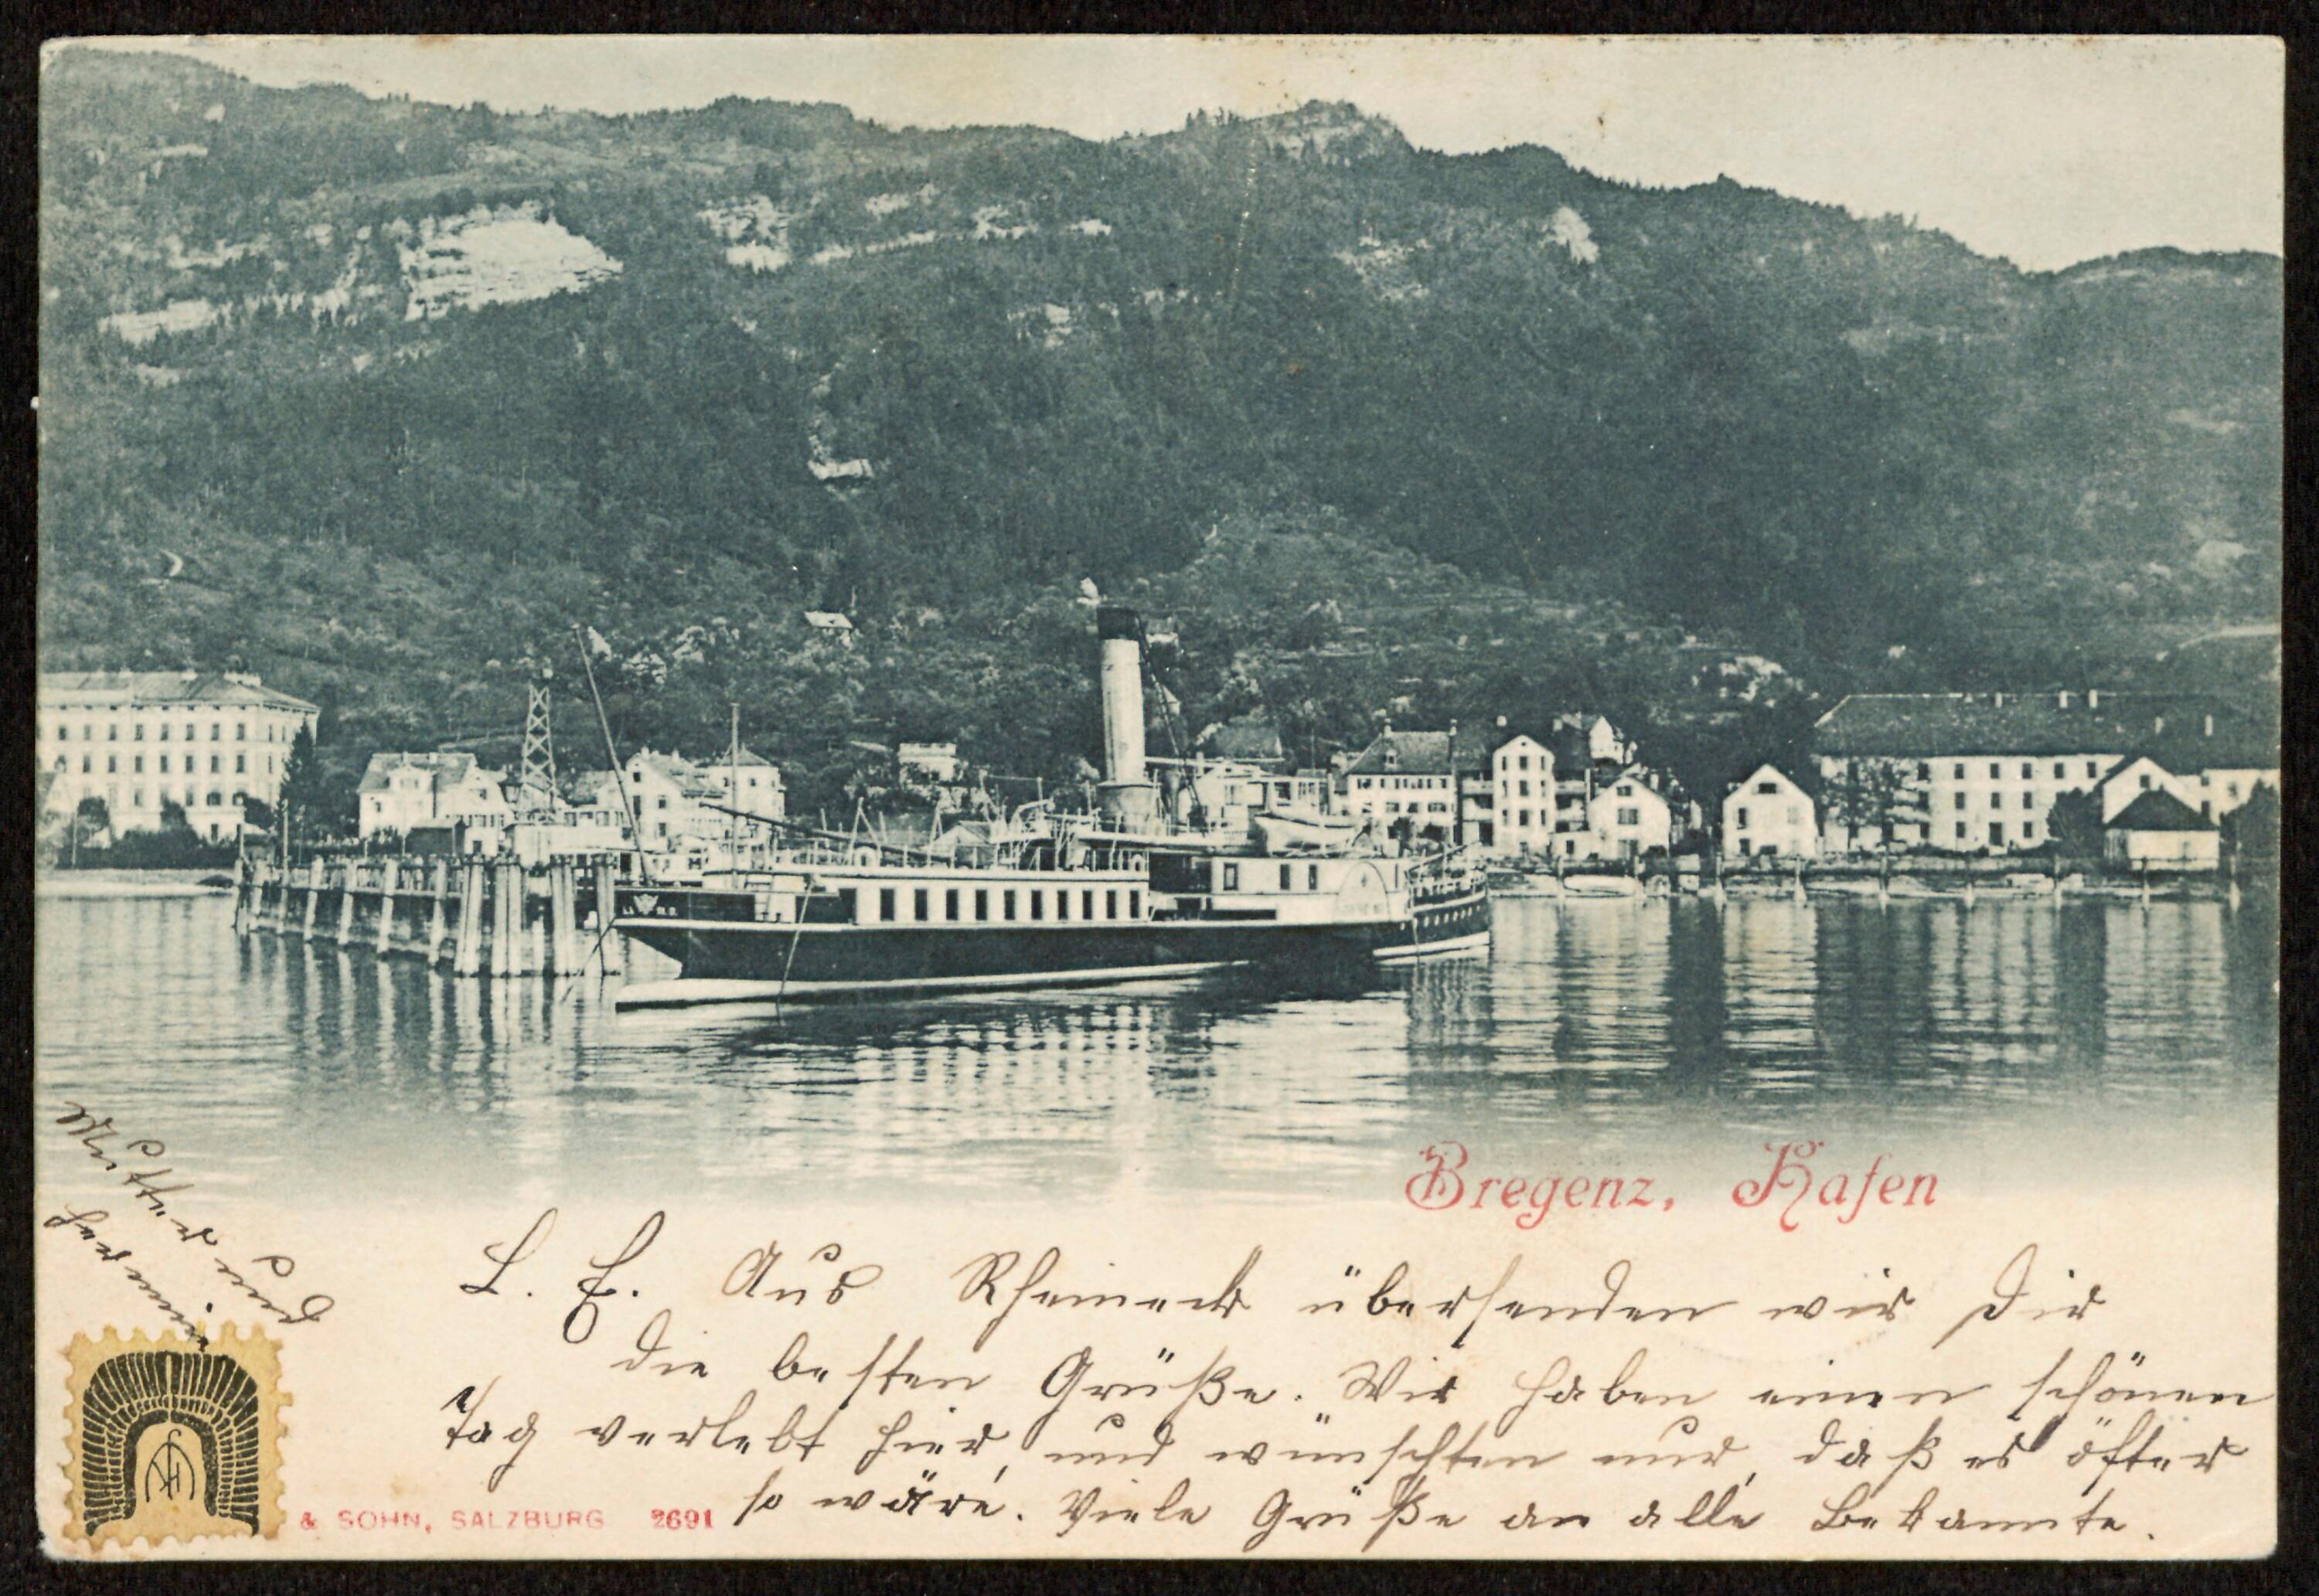 Bregenz, Hafen
L. E. Aus Rheineck übersenden wir Dir
die besten Grüße. Wir haben einen schönen
Tag verlebt hier, und wünschten nur, daß es öfter
so wäre. Viele Grüße an alle Bekannte.
Mutter und
Hermine
& SOHN, SALZBURG 2691